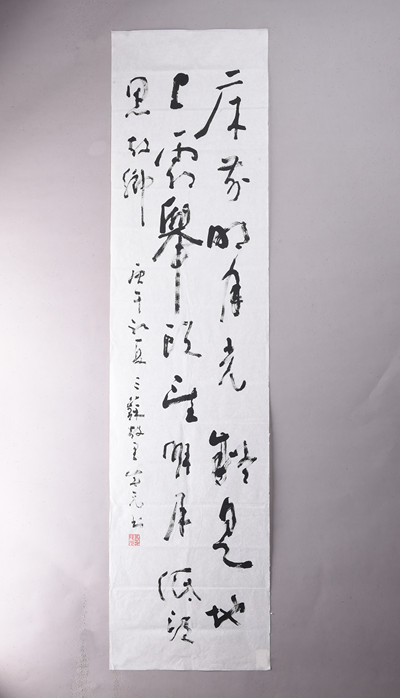 床前明月光疑是地
上霜举头望明月低头
思故乡
庚午初夏三苏故里